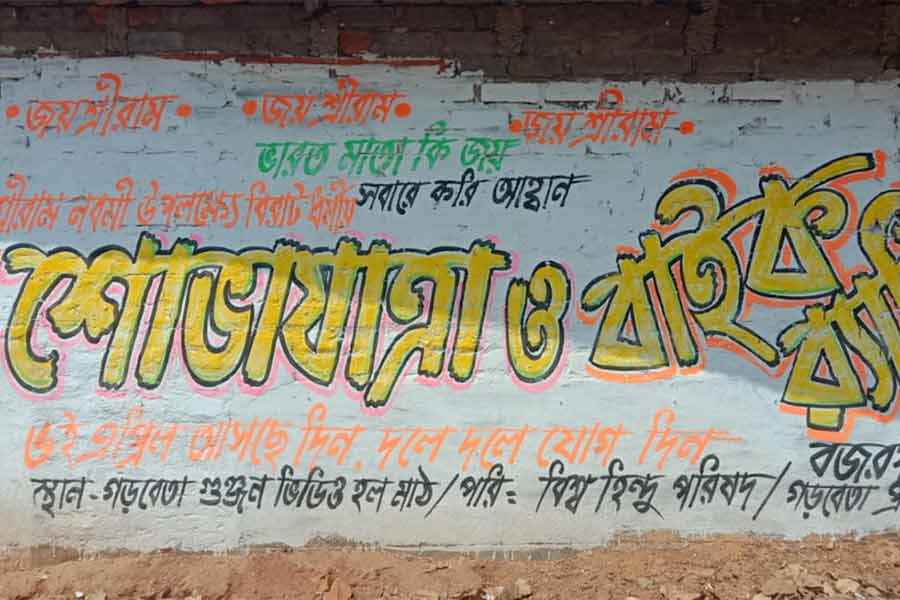 •জয়শ্রীরাম• •জয় শ্রীরাম• •জয় শ্রীরাম•
ভারত মাতা কি জয়
শ্রীরাম নবমী উপলক্ষ্যে বিরাট ধর্মীয় সবারে করি আহ্বান
শোভাযাত্রা ও বাইক র‍্যালি
৬ই এপ্রিল আসছে দিন, দলে দলে যোগ দিন
স্থান - গড়বেতা গুঞ্জন ভিডিও হল মাঠ / পরি: বিশ্ব হিন্দু পরিষদ /
গড়বেতা